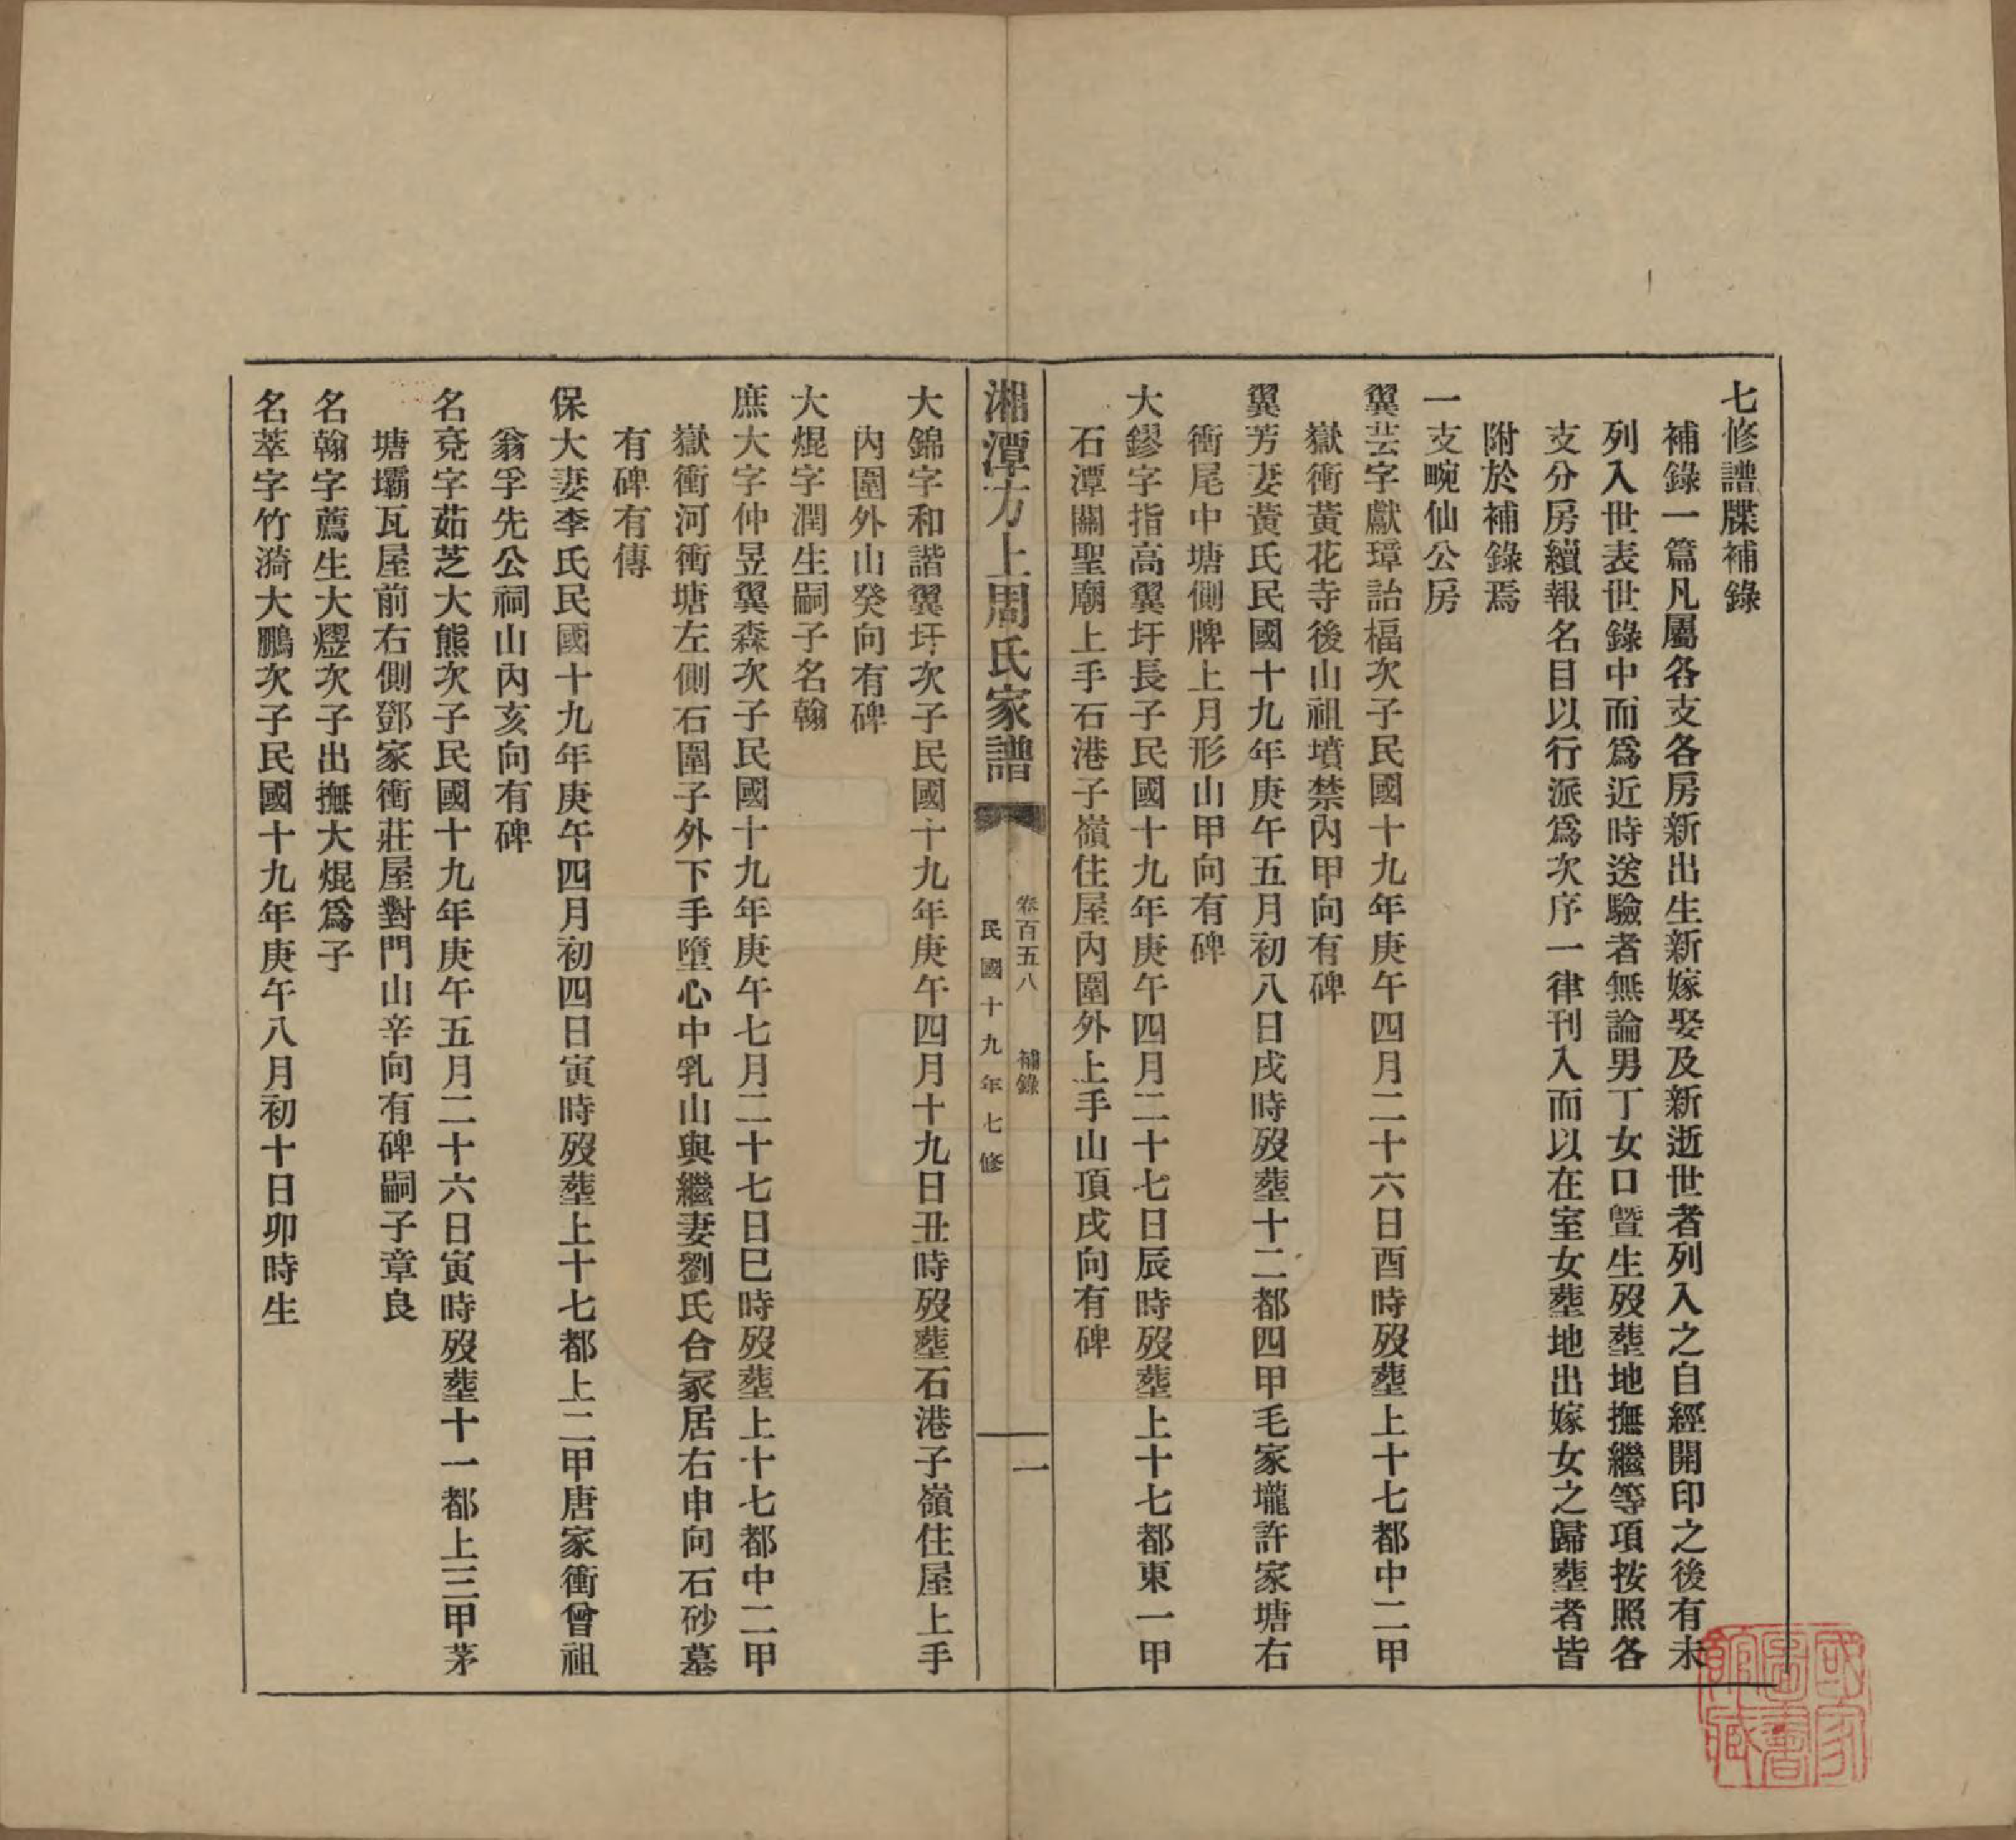 七修譜牒補錄
補錄一篇凡屬各支各房新出生新嫁娶及新逝世者列入之自經開印之後有未
列入世表世錄中而爲近時送驗者無論男丁女口暨生歿塟地撫繼等項按照各
支分房續報名目以行派爲次序一律刊入而以在室女塟地出嫁女之歸塟者皆
附於補錄焉
一支畹仙公房
翼芸字獻璋詒楅次子民國十九年庚午四月二十六日酉時歿塟上十七都中二甲
嶽衝黃花寺後山祖墳禁內甲向有碑
翼芳妻黃氏民國十九年庚午五月初八日戌時歿塟十二都四甲毛家壠許家塘右
衝尾中塘側牌上月形山甲向有碑
大鏐字指高翼圩長子民國十九年庚午四月二十七日辰時歿塟上十七都東一甲
石潭關聖廟上手石港子嶺住屋內圍外上手山頂戌向有碑
湘潭方上周氏家譜
卷百五八 補錄
民國十九年七修
一
大錦字和諧翼圩次子民國十九年庚午四月十九日丑時歿塟石港子嶺住屋上手
內圍外山癸向有碑
大焜字潤生嗣子名翰
庶大字仲昱翼森次子民國十九年庚午七月二十七日巳時歿塟上十七都中二甲
嶽衝河衝塘左側石圍子外下手墮心中乳山與繼妻劉氏合冢居右申向石砂墓
有碑有傳
保大妻李氏民國十九年庚午四月初四日寅時歿塟上十七都上二甲唐家衝曾祖
翁孚先公祠山內亥向有碑
名堯字茹芝大熊次子民國十九年庚午五月二十六日寅時歿塟十一都上三甲茅
塘壩瓦屋前右側鄧家衝莊屋對門山辛向有碑嗣子章良
名翰字薦生大熤次子出撫大焜爲子
名萃字竹漪大鵬次子民國十九年庚午八月初十日卯時生
國家圖書館藏